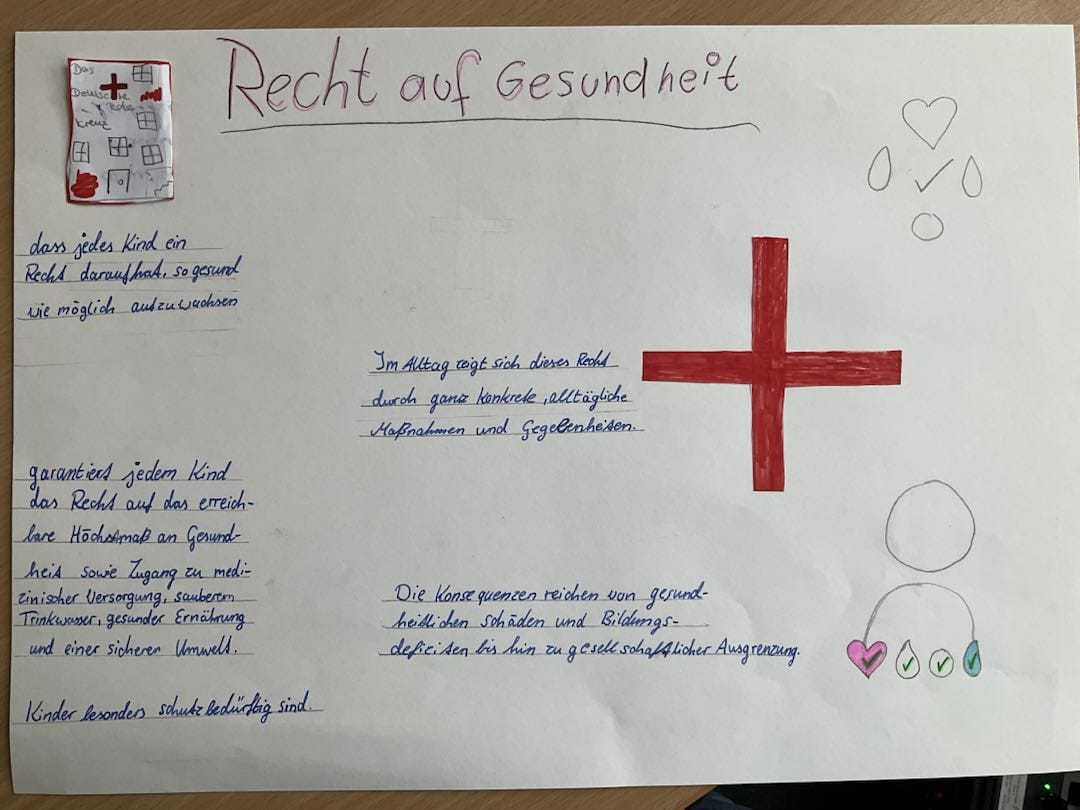 Recht auf Gesundheit
Das
Deutsche
Rote
Kreuz
dass jedes Kind ein
Recht darauf hat, so gesund
wie möglich aufzuwachsen
Im Alltag zeigt sich dieses Recht
durch ganz konkrete, alltägliche
Maßnahmen und Gegebenheiten.
garantiert jedem Kind
das Recht auf das erreich-
bare Höchstmaß an Gesund-
heit sowie Zugang zu medi-
zinischer Versorgung, sauberem
Trinkwasser, gesunder Ernährung
und einer sicheren Umwelt.
Die Konsequenzen reichen von gesund-
heitlichen schäden und Bildungs-
deficiten bis hin zu gesellschaftlicher Ausgrenzung.
Kinder besonders schutzbedürftig sind.